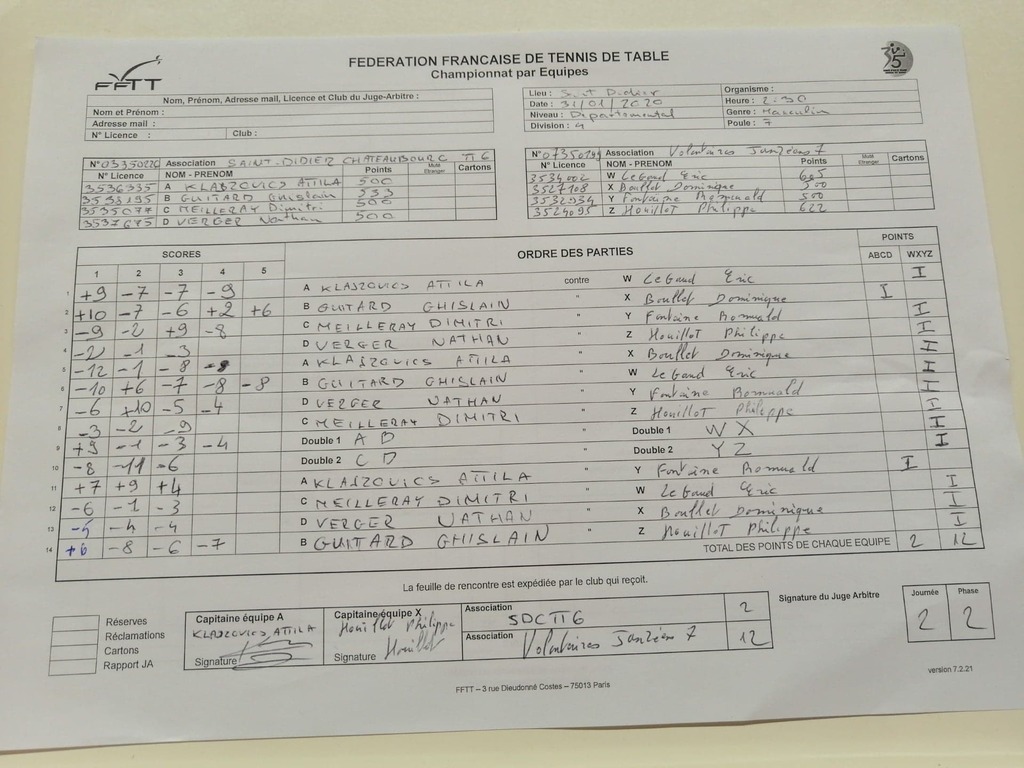 FEDERATION FRANCAISE DE TENNIS DE TABLE
Championnat par Equipes
FFTT
Nom, Prénom, Adresse mail, Licence et Club du Juge-Arbitre :
Nom et Prénom :
Adresse mail :
N° Licence : Club :
Lieu : Saint Didier Organisme :
Date : 31/01/2020 Heure : 2:30
Niveau : Départemental Genre : Masculin
Division : 4 Poule : 7
N°03350220 Association SAINT-DIDIER CHATEAUBOURG TT 6
N° Licence NOM - PRENOM Points Muté Etranger Cartons
3536335 A KLASZOVICS ATTILA 500
3538195 B GUITARD Ghislain 533
3535077 C MEILLERAY Dimitri 500
3537675 D VERGER Nathan 500
Association Volontaires Janzéens 7
N° Licence NOM - PRENOM Points Muté Etranger Cartons
3534002 W Le Gaud Eric 605
3527108 X Boullet Dominique 500
3532934 Y Fontaine Romuald 500
3524095 Z Houillot Philippe 622
SCORES ORDRE DES PARTIES POINTS
1 2 3 4 5 ABCD WXYZ
1 +9 -7 -7 -9 A KLASZOVICS ATTILA contre W Le Gaud Eric I
2 +10 -7 -6 +2 +6 B GUITARD GHISLAIN " X Boullet Dominique I
3 -9 -2 +9 -8 C MEILLERAY DIMITRI " Y Fontaine Romuald I
4 -2 -1 -3 D VERGER NATHAN " Z Houillot Philippe I
5 -12 -1 -8 A KLASZOVICS ATTILA " X Boullet Dominique I
6 -10 +6 -7 -8 -8 B GUITARD GHISLAIN " W Le Gaud Eric I
7 -6 +10 -5 -4 D VERGER NATHAN " Y Fontaine Romuald I
8 -3 -2 -9 C MEILLERAY DIMITRI " Z Houillot Philippe I
9 +9 -1 -3 -4 Double 1 A B " Double 1 W X I
10 -8 -11 -6 Double 2 C D " Double 2 Y Z I
11 +7 +9 +4 A KLASZOVICS ATTILA " Y Fontaine Romuald I
12 -6 -1 -3 C MEILLERAY DIMITRI " W Le Gaud Eric I
13 -5 -4 -4 D VERGER NATHAN " X Boullet Dominique I
14 +6 -8 -6 -7 B GUITARD GHISLAIN " Z Houillot Philippe I
TOTAL DES POINTS DE CHAQUE EQUIPE 2 12
La feuille de rencontre est expédiée par le club qui reçoit.
Réserves
Réclamations
Cartons
Rapport JA
Capitaine équipe A
KLASZOVICS ATTILA
Signature
Capitaine équipe X
Houillot Philippe
Signature Houillot
Association SDCTT6 2
Association Volontaires Janzéens 7 12
Signature du Juge Arbitre
Journée Phase
2 2
version 7.2.21
FFTT – 3 rue Dieudonné Costes – 75013 Paris